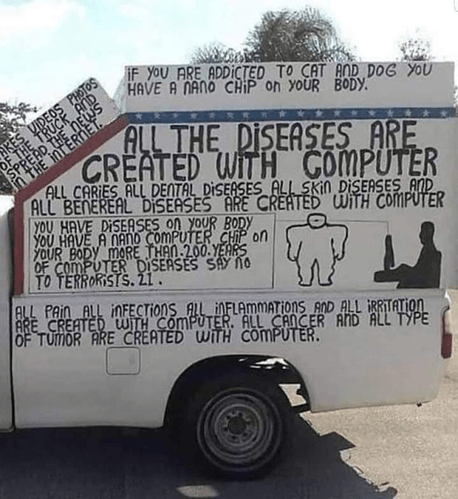 IF YOU ARE ADDICTED TO CAT AND DOG YOU
HAVE A NANO CHIP ON YOUR BODY.
VIDEOS PHOTOS
OF THE TRUCK AND
SPREAD THE NEWS
IN THE INTERNET
ALL THE DISEASES ARE
CREATED WITH COMPUTER
ALL CARIES ALL DENTAL DISEASES ALL SKIN DISEASES AND
ALL BENEREAL DISEASES ARE CREATED WITH COMPUTER
YOU HAVE DISEASES ON YOUR BODY
YOU HAVE A NANO COMPUTER CHIP ON
YOUR BODY MORE THAN.200.YEARS
OF COMPUTER DISEASES SAY NO
TO TERRORISTS.21.
ALL PAIN ALL INFECTIONS ALL INFLAMMATIONS AND ALL IRRITATION
ARE CREATED WITH COMPUTER. ALL CANCER AND ALL TYPE
OF TUMOR ARE CREATED WITH COMPUTER.